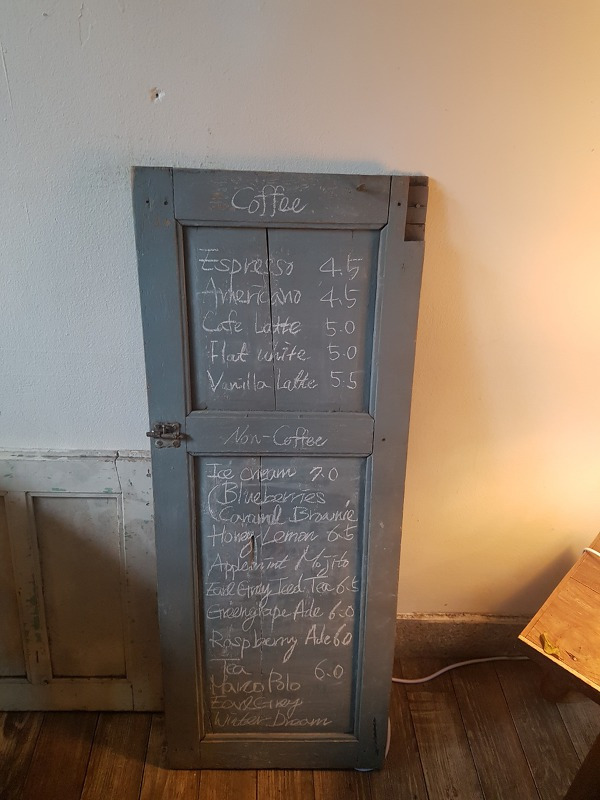 Coffee
Espresso 4.5
Americano 4.5
Cafe Latte 5.0
Flat white 5.0
Vanilla Latte 5.5
Non-Coffee
Ice cream 7.0
(Blueberries
Caramel Brownie
Honey Lemon 6.5
Applemint Mojito
Earl Grey Iced Tea 6.5
Greengrape Ade 6.0
Raspberry Ade 6.0
Tea 6.0
Marco Polo
Earl Grey
Winter-Dream